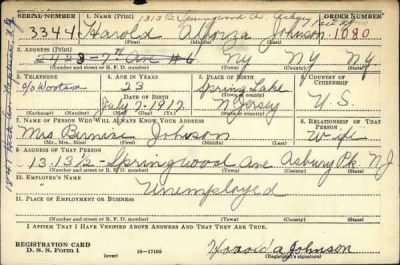 1313½ Springwood Ave.
SERIAL NUMBER 1. NAME (Print) ORDER NUMBER
3344 Harold Alonza Johnson 1080
(First) (Middle) (Last)
2. ADDRESS (Print)
2423-7th Av #6 NY NY NY
(Number and street or R. F. D. number) (Town) (County) (State)
3. TELEPHONE 4. AGE IN YEARS 5. PLACE OF BIRTH 6. COUNTRY OF CITIZENSHIP
23 Spring Lake
DATE OF BIRTH (Town or county)
July 7-1917 N Jersey U.S.
(Exchange) (Number) (Mo.) (Day) (Yr.) (State or country)
7. NAME OF PERSON WHO WILL ALWAYS KNOW YOUR ADDRESS 8. RELATIONSHIP OF THAT PERSON
Mrs Bernise Johnson Wife
(Mr., Mrs., Miss) (First) (Middle) (Last)
9. ADDRESS OF THAT PERSON
1313½-Springwood Ave Asbury Pk. NJ
(Number and street or R. F. D. number) (Town) (County) (State)
10. EMPLOYER'S NAME
Unemployed
11. PLACE OF EMPLOYMENT OR BUSINESS
(Number and street or R. F. D. number) (Town) (County) (State)
I AFFIRM THAT I HAVE VERIFIED ABOVE ANSWERS AND THAT THEY ARE TRUE.
REGISTRATION CARD
D. S. S. Form 1 (over) 16-17105
Harold A Johnson
(Registrant's signature)